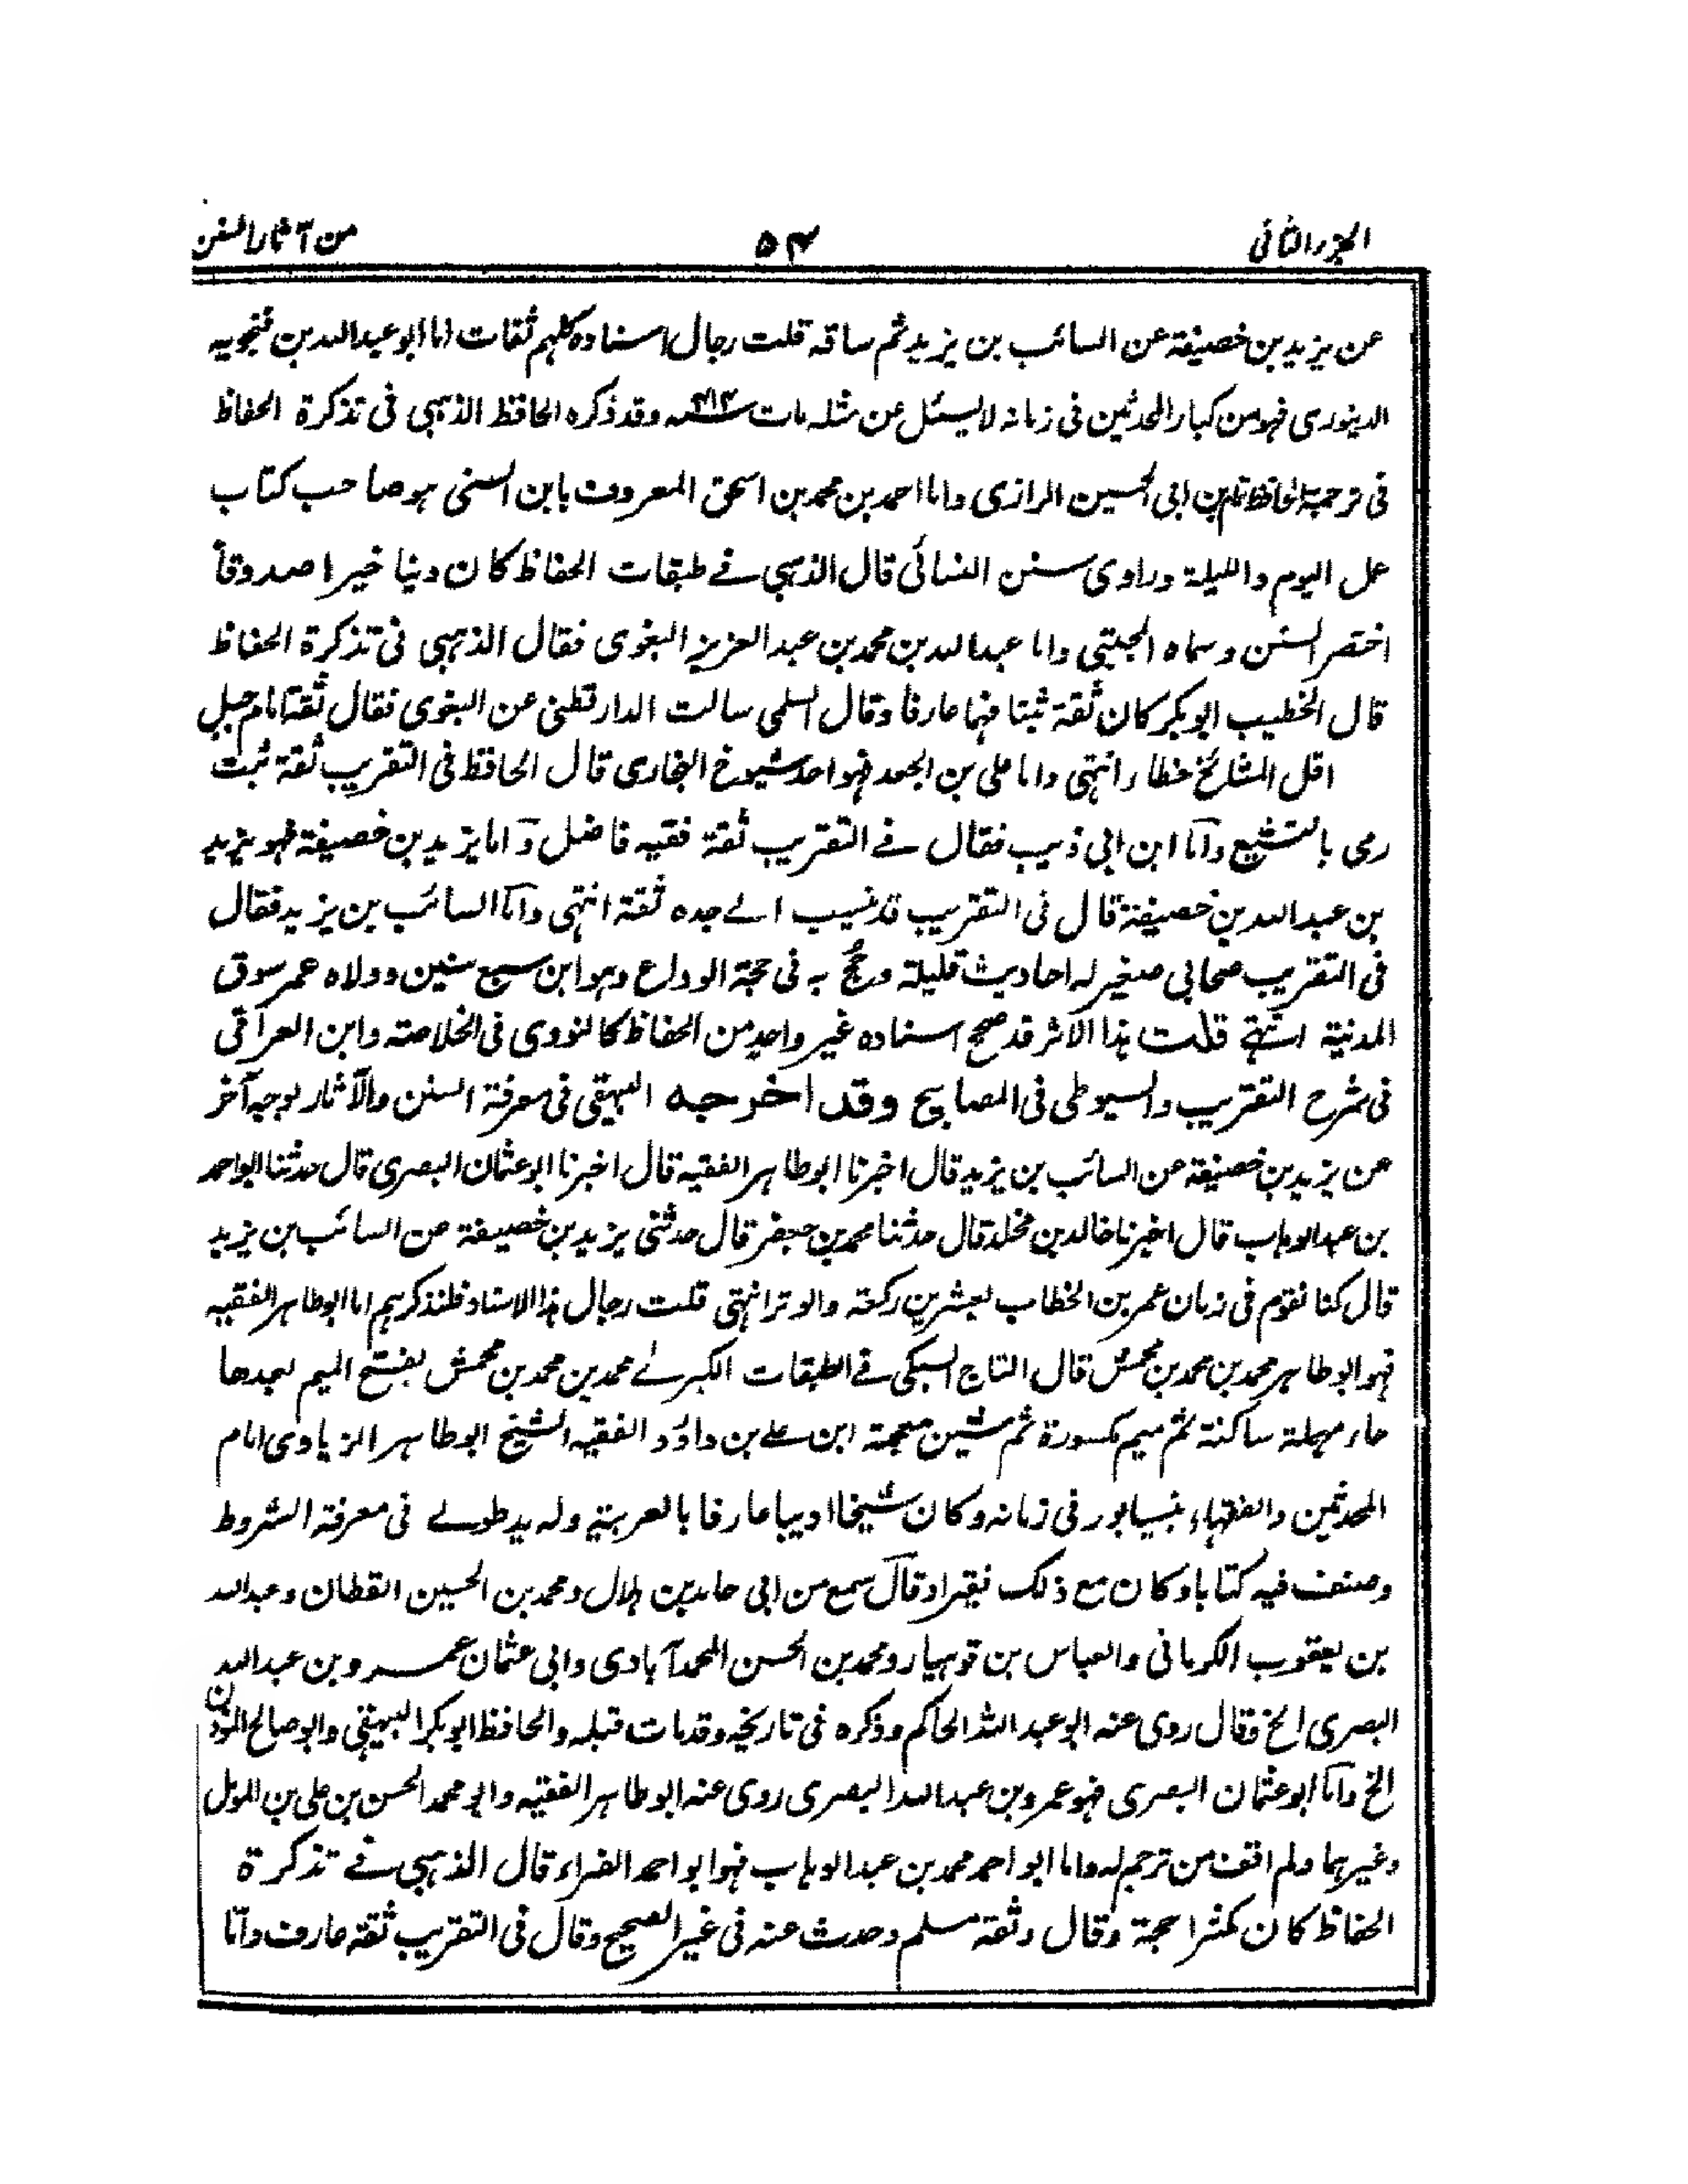 الجزء الثانى ۵۴ من آثار السنن
عن يزيد بن خصيفة عن السائب بن يزيد ثم ساقه قلت رجال اسناده كلهم ثقات اما ابو عبد الله بن فنجويه
الدينورى فهو من كبار المحدثين فى زمانه لا يسئل عن مثله مات سنة ۴۱۴ وقد ذكره الحافظ الذهبى فى تذكرة الحفاظ
فى ترجمة الحافظ تمام بن ابى الحسين الرازى واما احمد بن محمد بن اسحق المعروف بابن السنى هو صاحب كتاب
عمل اليوم والليلة وراوى سنن النسائى قال الذهبى فے طبقات الحفاظ كان دينا خيرا صدوقا
اختصر السنن وسماه المجتبى واما عبد الله بن محمد بن عبد العزيز البغوى فقال الذهبى فى تذكرة الحفاظ
قال الخطيب ابو بكر كان ثقة ثبتا فهما عارفا وقال السلمى سالت الدارقطنى عن البغوى فقال ثقة امام جبل
اقل المشائخ خطاء انتهى واما على بن الجعد فهو احد شيوخ البخارى قال الحافظ فى التقريب ثقة ثبت
رمى بالتشيع وآما ابن ابى ذيب فقال فے التقريب ثقة فقيه فاضل وآما يزيد بن خصيفة فهو يزيد
بن عبد الله بن خصيفة قال فى التقريب قد نسيب الے جده ثقة انتهى وآما السائب بن يزيد فقال
فى التقريب صحابى صغير له احاديث قليلة وحُجَّ به فى حجة الوداع وهو ابن سبع سنين وولاه عمر سوق
المدنية انتهے قلت هذا الاثر قد صحح اسناده غير واحد من الحفاظ كالنووى فى الخلاصة وابن العراقى
فى شرح التقريب والسيوطى فى المصابيح وقد اخرجه البيهقى فى معرفة السنن والآثار بوجه آخر
عن يزيد بن خصيفة عن السائب بن يزيد قال اخبرنا ابو طاهر الفقيه قال اخبرنا ابو عثمان البصرى قال حدثنا ابو احمد
بن عبد الوهاب قال اخبرنا خالد بن مخلد قال حدثنا محمد بن جعفر قال حدثنى يزيد بن خصيفة عن السائب بن يزيد
قال كنا نقوم فى زمان عمر بن الخطاب بعشرين ركعة والوتر انتهى قلت رجال هذا الاسناد فلنذكرهم اما ابو طاهر الفقيه
فهو ابو طاهر محمد بن محمد بن محمش قال التاج السبكى فے الطبقات الكبرےٰ محمد بن محمد بن محمش بفتح الميم بعدها
حاء مهملة ساكنة ثم ميم مكسورة ثم شين معجمة ابن علے بن داؤد الفقيه الشيخ ابو طاهر الزيادى امام
المحدثين والفقهاء بنيسابور فى زمانه وكان شيخا اديبا عارفا بالعربية وله يد طولے فى معرفة الشروط
وصنف فيه كتابا وكان مع ذلك فقيرا وقال سمع من ابى حامد بن بلال ومحمد بن الحسين القطان وعبد الله
بن يعقوب الكرمانى والعباس بن قوهيار ومحمد بن الحسن المحمدآبادى وابى عثمان عمرو بن عبد الله
البصرى الخ وقال روى عنه ابو عبد الله الحاكم وذكره فى تاريخه وقد مات قبله والحافظ ابو بكر البيهقى وابو صالح المؤذن
الخ وآما ابو عثمان البصرى فهو عمرو بن عبد الله البصرى روى عنه ابو طاهر الفقيه وابو محمد الحسن بن على بن المؤمل
وغيرهما ولم اقف من ترجم له واما ابو احمد محمد بن عبد الوهاب فهو ابو احمد الفراء قال الذهبى فے تذكرة
الحفاظ كان مكثرا حجة وقال وثقة مسلم وحدث عنه فى غير الصحيح وقال فى التقريب ثقة عارف وآما